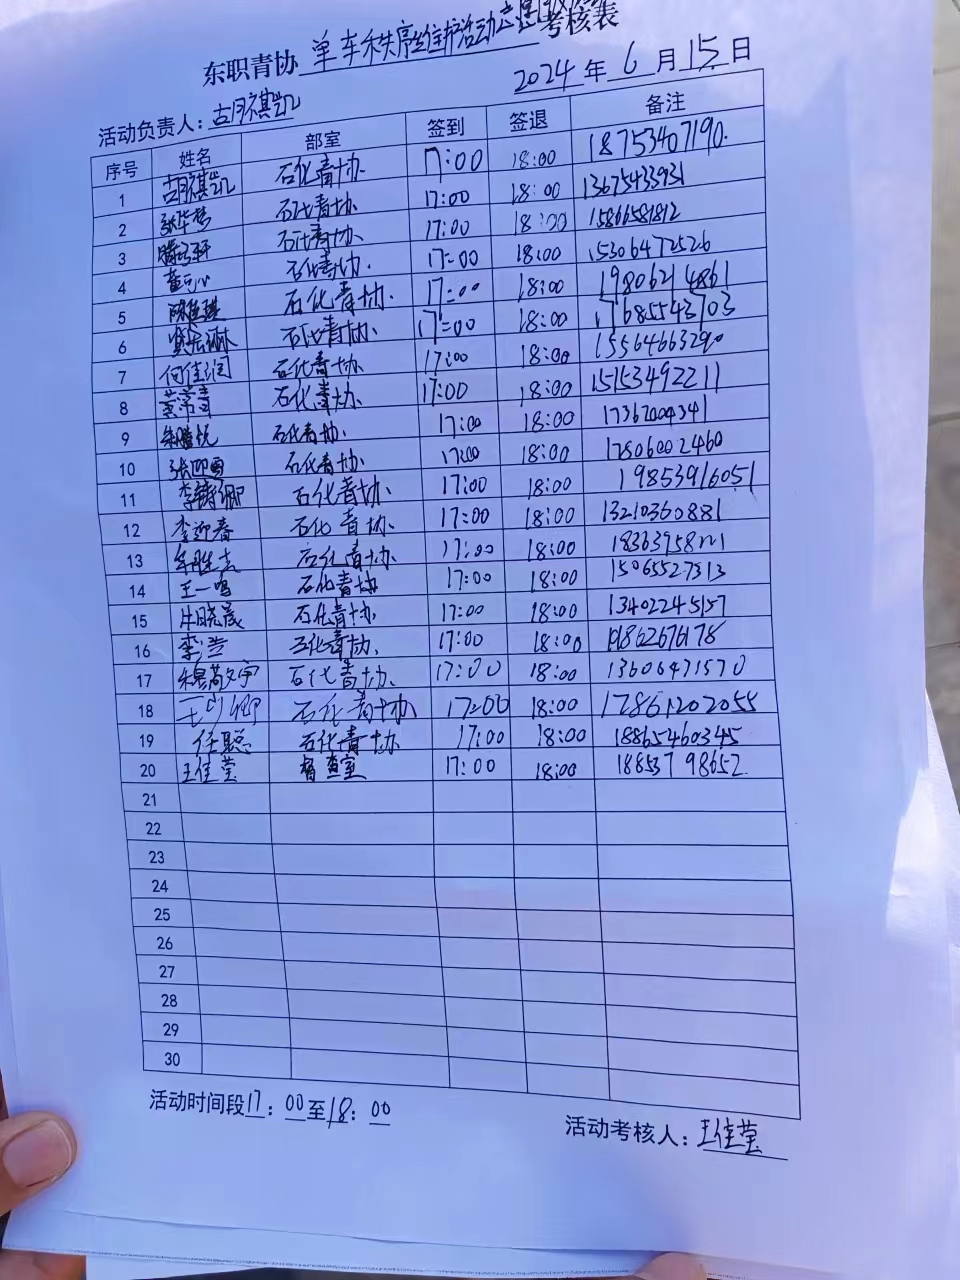 东职青协 单车秩序维护活动志愿服务考核表
2024年6月15日
活动负责人：胡祺凯
序号 姓名 部室 签到 签退 备注
1 胡祺凯 石化青协 17:00 18:00 18753407190
2 张华梦 石化青协 17:00 18:00 13675433931
3 石化青协 17:00 18:00 15866581812
4 董可心 石化青协 17:00 18:00 15306472526
5 石化青协 17:00 18:00 19806214861
6 石化青协 17:00 18:00 17685543703
7 何佳润 石化青协 17:00 18:00 15564663290
8 石化青协 17:00 18:00 15153492211
9 石化青协 17:00 18:00 17362004341
10 张迎雪 石化青协 17:00 18:00 17806002460
11 石化青协 17:00 18:00 19853916051
12 李迎春 石化青协 17:00 18:00 13210360881
13 石化青协 17:00 18:00
14 王一鸣 石化青协 17:00 18:00 15065527313
15 牛晓晟 石化青协 17:00 18:00 13402245157
16 李兰 石化青协 17:00 18:00 19862676178
17 石化青协 17:00 18:00 13606471570
18 石化青协 17:00 18:00 17861202055
19 任聪 石化青协 17:00 18:00 18865460345
20 王佳莹 督查室 17:00 18:00 18853798652
21
22
23
24
25
26
27
28
29
30
活动时间段17：00至18：00
活动考核人：王佳莹